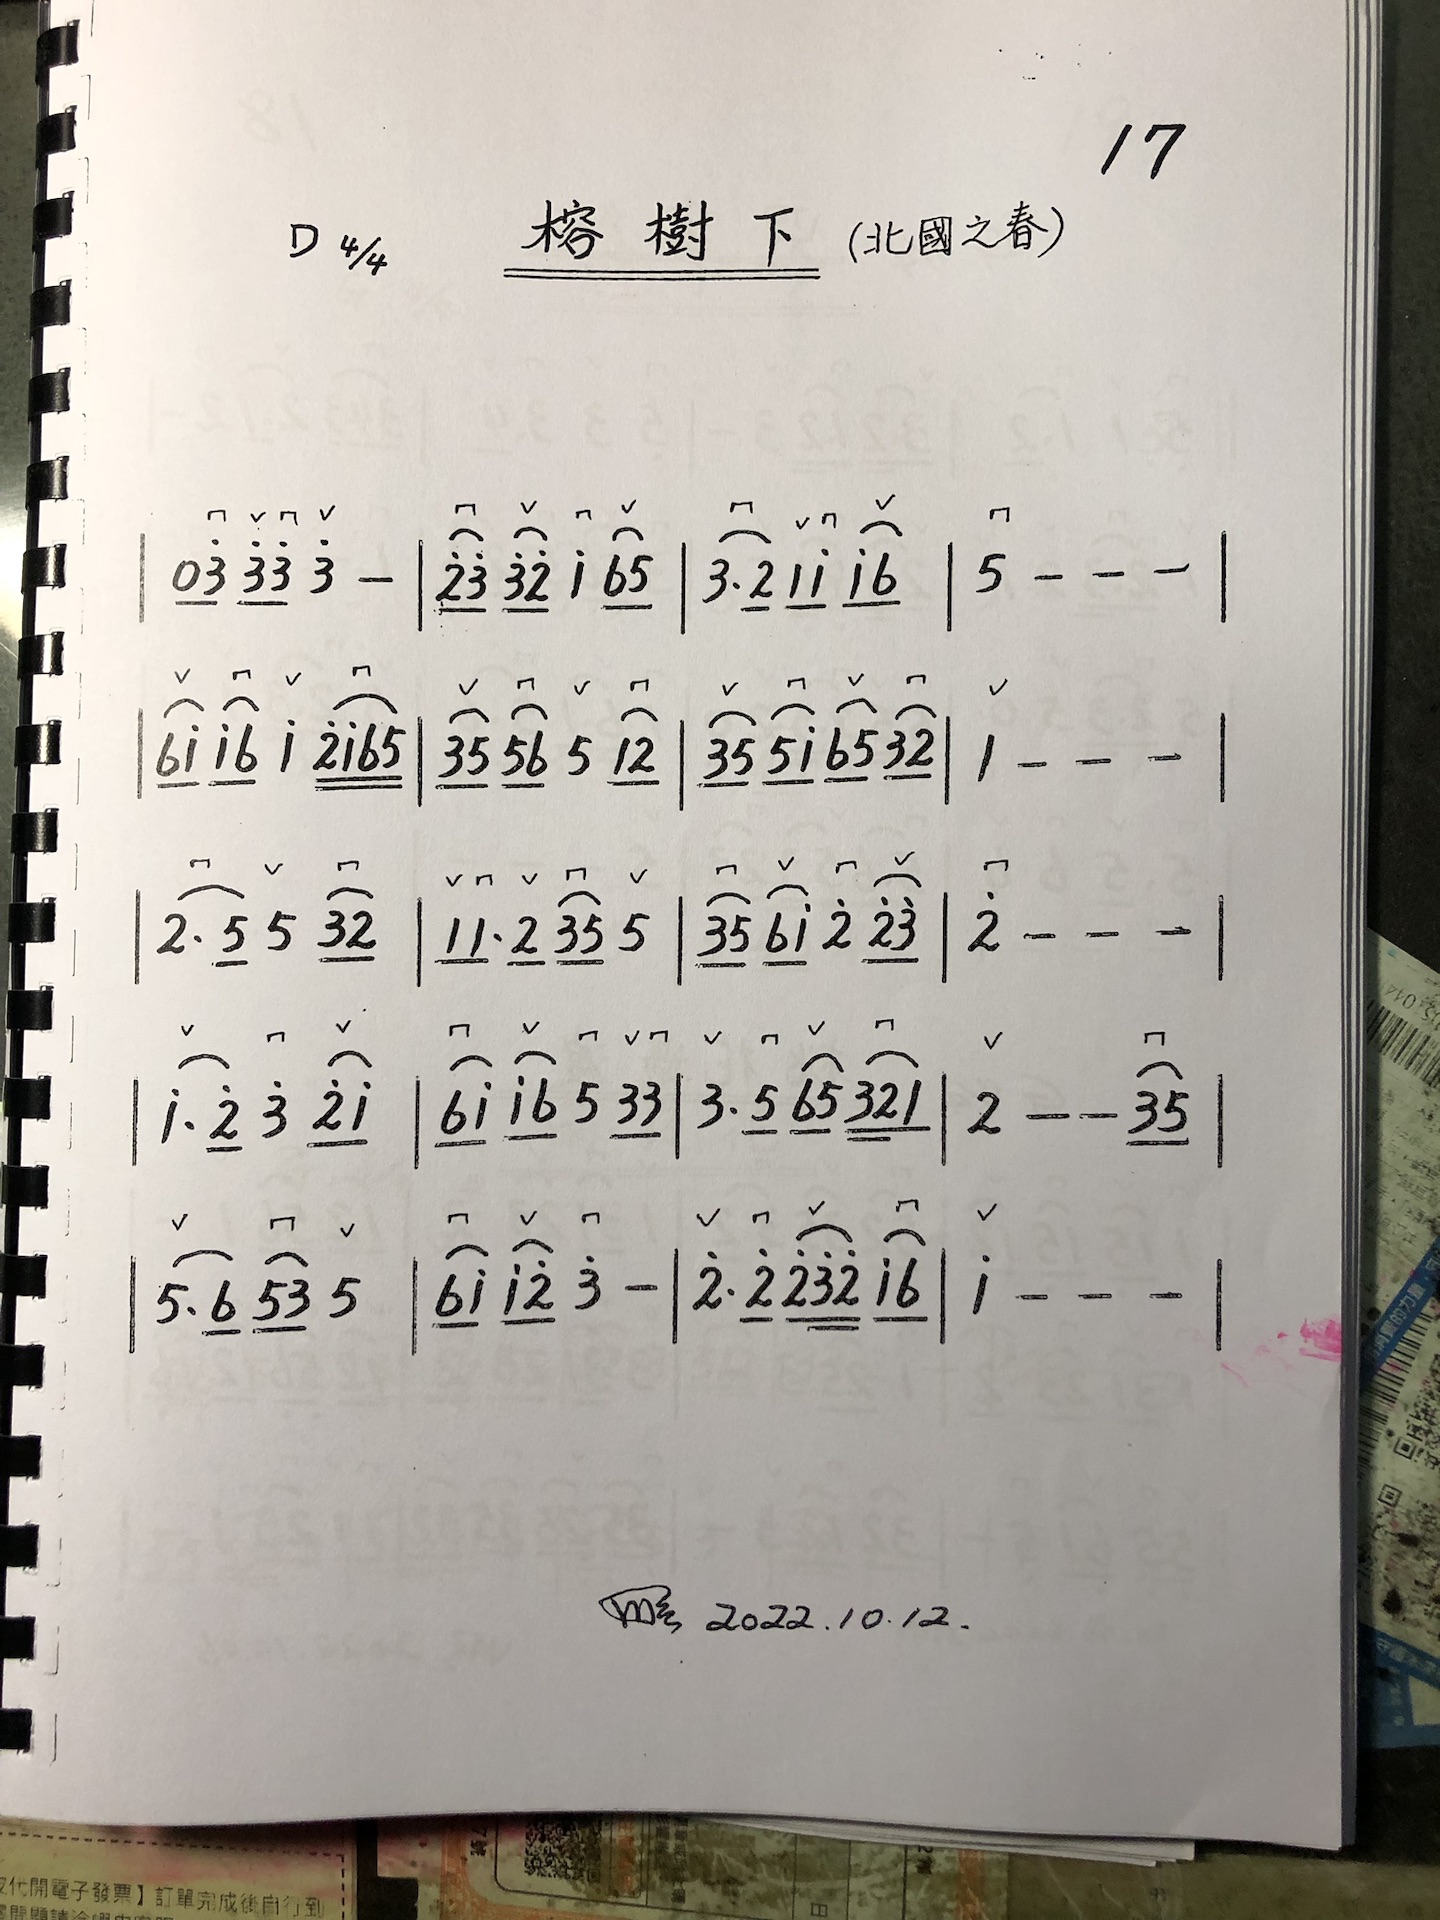 17
D 4/4 榕樹下 (北國之春)
| 03̇ 3̇3̇ 3̇ – | 2̇3̇ 3̇2̇ 1̇ 65 | 3·2 11̇ 1̇6 | 5 – – – |
| 61̇ 1̇6 1̇ 2̇1̇65 | 35 56 5 12 | 35 51̇ 65 32 | 1 – – – |
| 2·5 5 32 | 11·2 35 5 | 35 61̇ 2̇ 2̇3̇ | 2̇ – – – |
| 1̇·2̇ 3̇ 2̇1̇ | 61̇ 1̇6 5 33 | 3·5 65 321 | 2 – – 35 |
| 5·6 53 5 | 61̇ 1̇2̇ 3̇ – | 2̇·2̇ 2̇3̇2̇ 1̇6 | 1̇ – – – |
2022.10.12.
代開電子發票】訂單完成後自行到